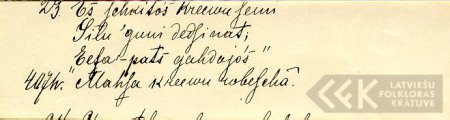 23. Es schkitôs kreewu semi
Silu guni dedsinat;
Eesa-pats gahdajôs"
"Mahsa kreewu robeschâ.
LATVIEŠU
FOLKLORAS
KRATUVE